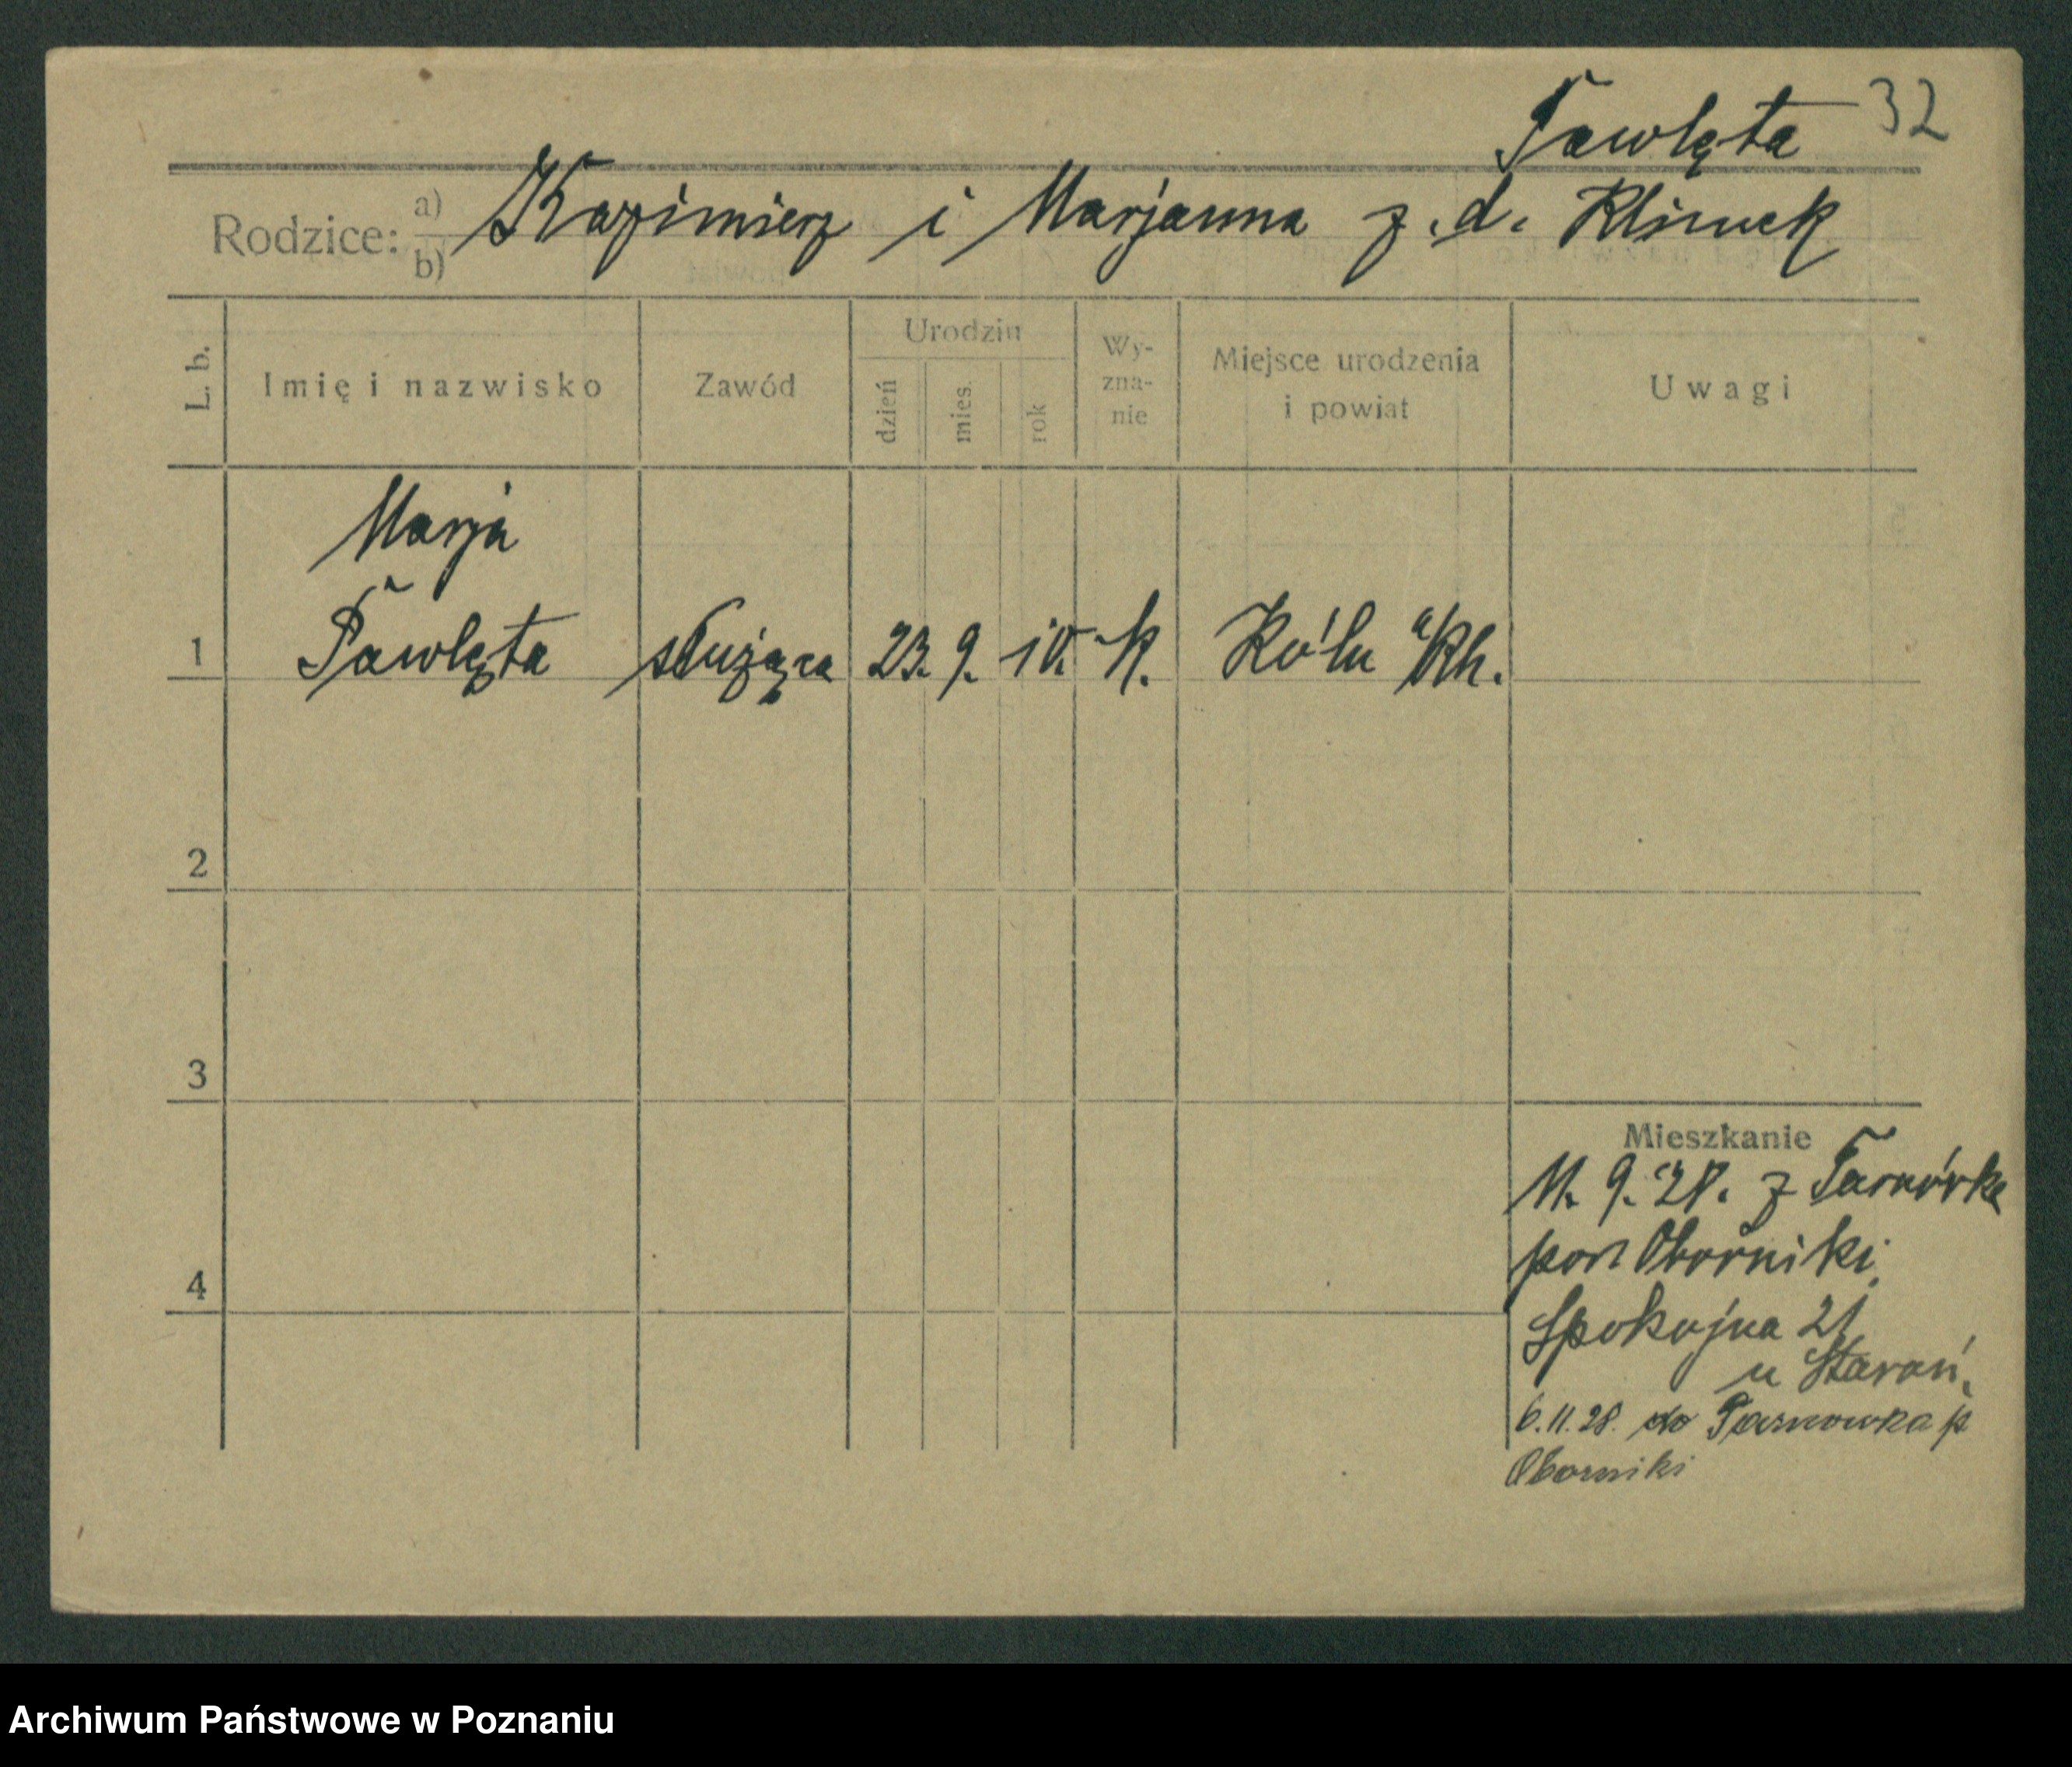 Pawlęta 32
Rodzice: a) b) Kazimierz i Marjanna z. d. Klimek
L. b. Imię i nazwisko Zawód Urodzin dzień mies. rok Wy-zna-nie Miejsce urodzenia i powiat Uwagi
Marja
1 Pawlęta służąca 23. 9. 10. k. Köln a/Rh.
2
3
Mieszkanie
11. 9. 28. z Tarnówka
pow Oborniki
4
Spokojna 21
u Starań.
6.11.28. do Tarnowka p
Oborniki
Archiwum Państwowe w Poznaniu